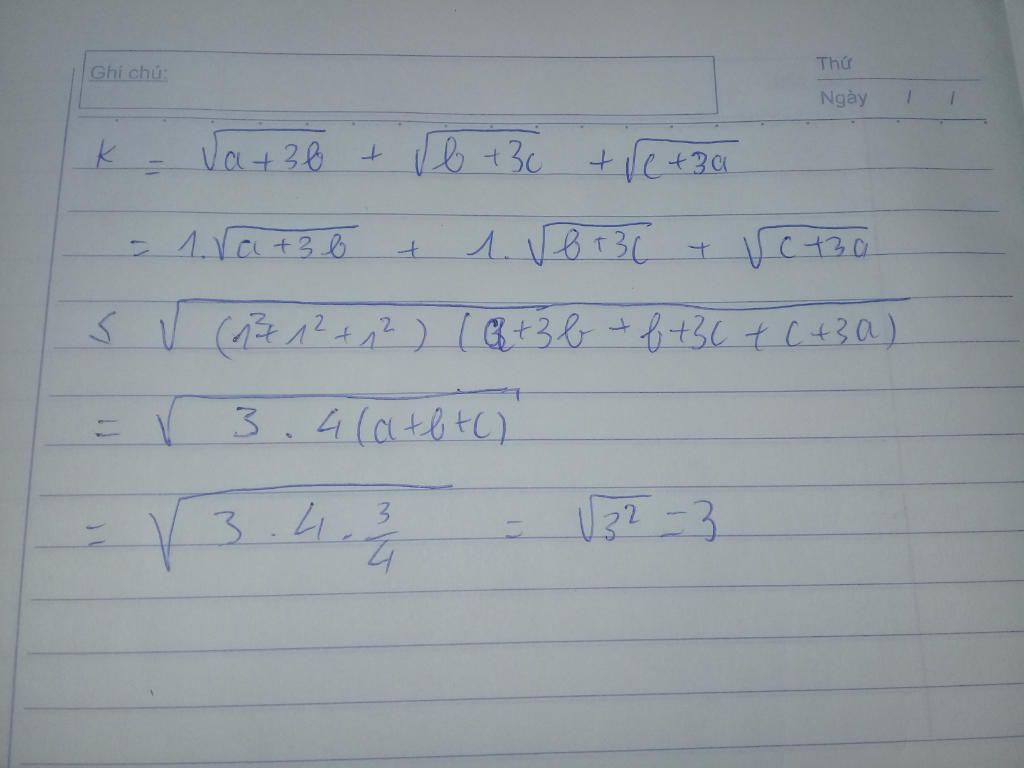 Ghi chú:
Thứ
Ngày / /
K = √(a+3b) + √(b+3c) + √(c+3a)
= 1.√(a+3b) + 1.√(b+3c) + √(c+3a)
≤ √((1²+1²+1²)(a+3b+b+3c+c+3a))
= √(3.4(a+b+c))
= √(3.4.3/4) = √3² = 3